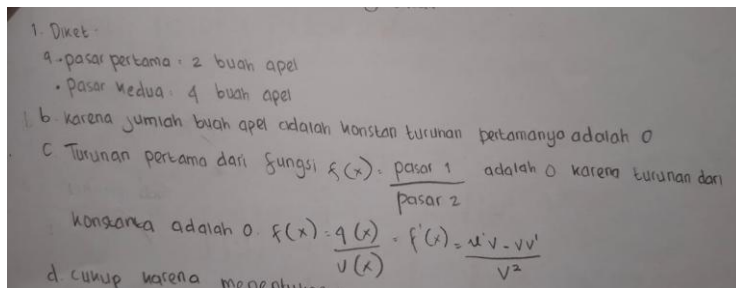 1. Diket.
a. pasar pertama : 2 buah apel
• Pasar kedua : 4 buah apel
b. karena jumlah buah apel adalah konstan turunan pertamanya adalah 0
c Turunan pertama dari fungsi f(x) = pasar 1 / pasar 2 adalah 0 karena turunan dari
konstanta adalah 0. f(x) = q(x) / v(x) = f'(x) = u'v - vv' / v²
d. cukup karena